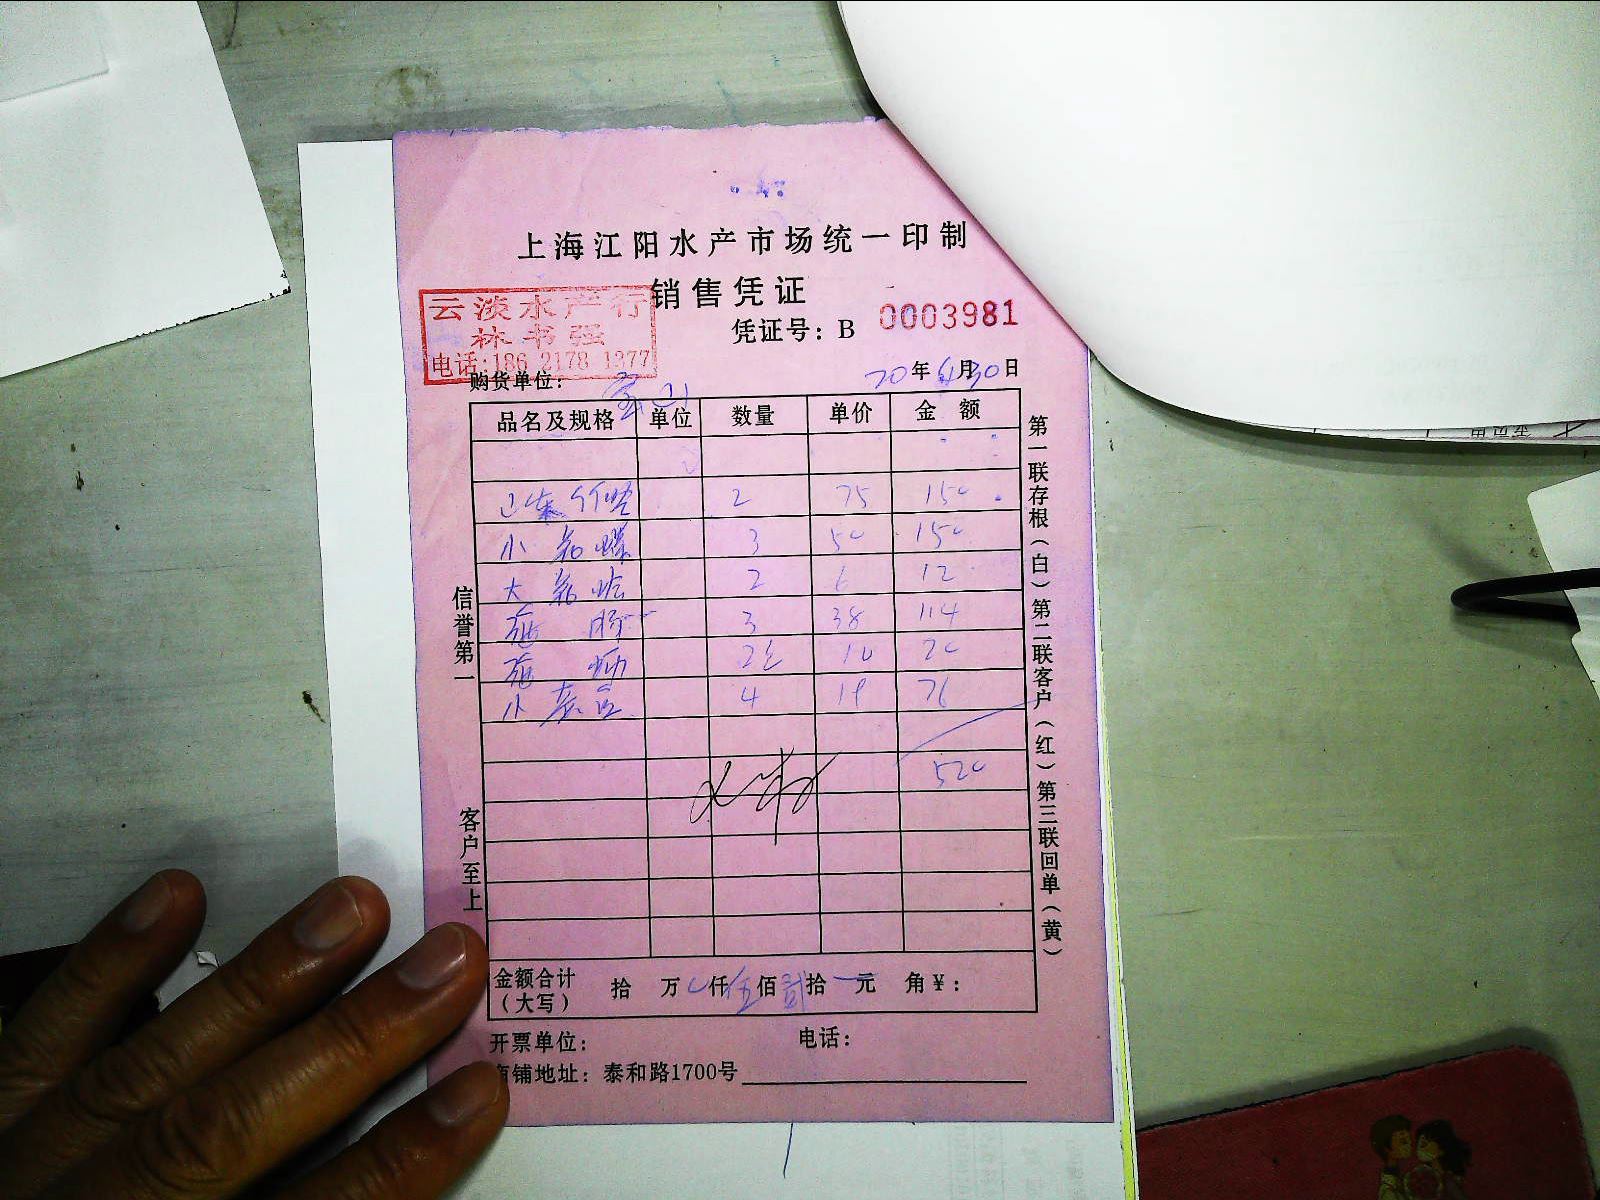 上海江阳水产市场统一印制
销售凭证
云淡水产行
林书强
电话:186 2178 1377
凭证号：B 0003981
购货单位：
20年6月30日
品名及规格 单位 数量 单价 金额
山东竹蛏 2 75 150
小 3 50 150
大 2 6 12
3 38 114
10 20
小 4 19 76
520
金额合计（大写） 拾 万 仟伍佰贰拾 元 角¥：
开票单位： 电话：
商铺地址：泰和路1700号
信誉第一
客户至上
第一联存根（白）第二联客户（红）第三联回单（黄）